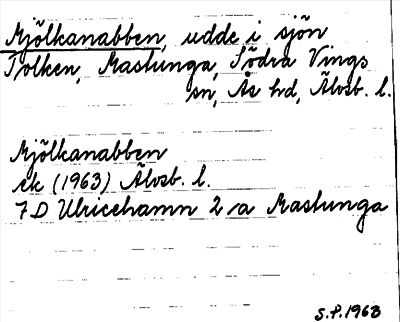 Mjölkanabben, udde i sjön
Tolken, Mastunga, Södra Vings
sn, Ås hd, Älvsb. l.
Mjölkanabben
ek (1963) Älvsb. l.
7D Ulricehamn 2 a Mastunga
S.P. 1963